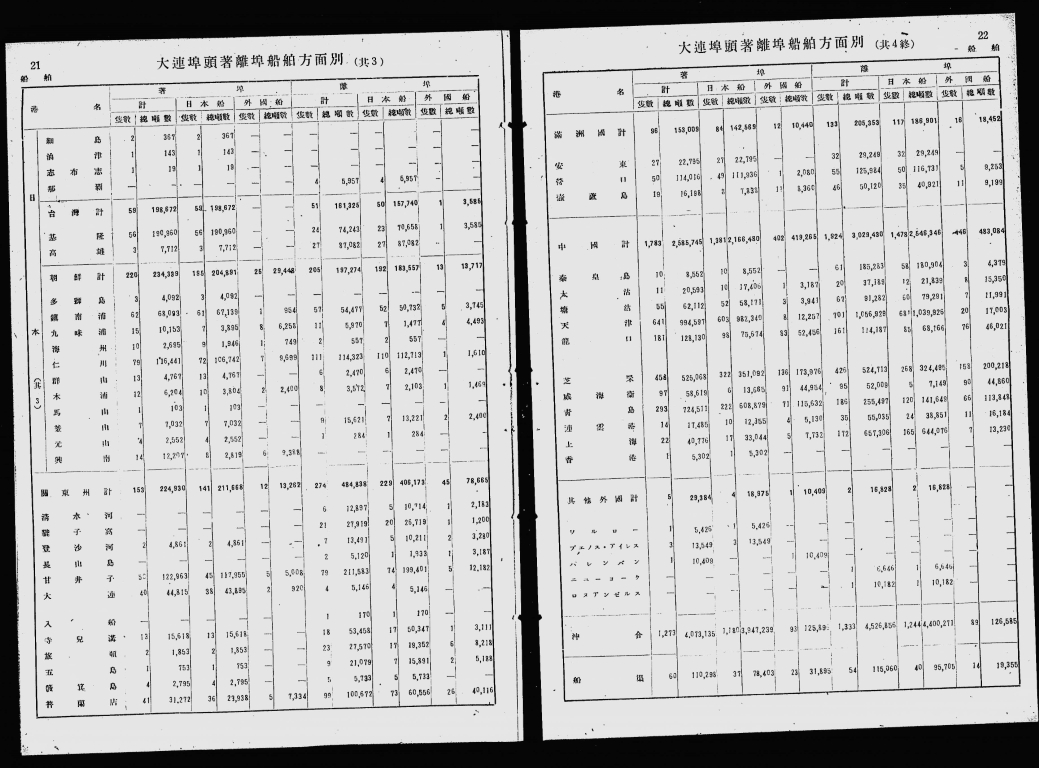 21
船舶
大連埠頭著離埠船舶方面別 (共3)
港名 著埠 離埠
計 日本船 外國船 計 日本船 外國船
隻數 總噸數 隻數 總噸數 隻數 總噸數 隻數 總噸數 隻數 總噸數 隻數 總噸數
細島 2 367 2 367 — — — — — — — —
油津 1 143 1 143 — — — — — — — —
志布志 1 19 1 19 — — — — — — — —
那覇 — — — — — — 4 5,957 4 5,957 — —
日
台灣計 59 198,672 59 198,672 — — 51 161,325 50 157,740 1 3,585
基隆 56 190,960 56 190,960 — — 24 74,243 23 70,658 1 3,585
高雄 3 7,712 3 7,712 — — 27 87,082 27 87,082 — —
朝鮮計 220 234,339 195 204,891 25 29,448 205 197,274 192 183,557 13 13,717
多獅島 3 4,092 3 4,092 — — — — — — — —
鎭南浦 62 68,093 61 67,139 1 954 57 54,477 52 50,732 5 3,745
九味浦 15 10,153 7 3,895 8 6,258 11 5,970 7 1,477 4 4,493
海州 10 2,695 9 1,946 1 749 2 557 2 557 — —
仁川 79 116,441 72 106,742 7 9,699 111 114,323 110 112,713 1 1,610
群山 13 4,767 13 4,767 — — 6 2,470 6 2,470 — —
木浦 12 6,204 10 3,804 2 2,400 8 3,572 7 2,103 1 1,469
馬山 1 103 1 103 — — — — — — — —
釜山 7 7,032 7 7,032 — — 9 15,621 7 13,221 2 2,400
元山 4 2,552 4 2,552 — — 1 284 1 284 — —
興南 14 12,207 8 2,819 6 9,388 — — — — — —
本
(共3)
關東州計 153 224,930 141 211,668 12 13,262 274 484,838 229 406,173 45 78,665
淸水河 — — — — — — 6 12,897 5 10,714 1 2,183
貔子窩 — — — — — — 21 27,919 20 26,719 1 1,200
登沙河 2 4,861 2 4,861 — — 7 13,491 5 10,211 2 3,280
長山島 — — — — — — 2 5,120 1 1,933 1 3,187
甘井子 50 122,963 45 117,955 5 5,008 79 211,583 74 199,401 5 12,182
大連 40 44,815 38 43,895 2 920 4 5,146 4 5,146 — —
入船 — — — — — — 1 170 1 170 — —
寺兒溝 13 15,618 13 15,618 — — 18 53,458 17 50,347 1 3,111
旅順 2 1,853 2 1,853 — — 23 27,570 17 19,352 6 8,218
五島 1 753 1 753 — — 9 21,079 7 15,891 2 5,188
島 4 2,795 4 2,795 — — 5 5,733 5 5,733 — —
普蘭店 41 31,272 36 23,938 5 7,334 99 100,672 73 60,556 26 40,116
22
船舶
大連埠頭著離埠船舶方面別 (共4終)
港名 著埠 離埠
計 日本船 外國船 計 日本船 外國船
隻數 總噸數 隻數 總噸數 隻數 總噸數 隻數 總噸數 隻數 總噸數 隻數 總噸數
滿洲國計 96 153,009 84 142,569 12 10,440 133 205,353 117 186,901 16 18,452
安東 27 22,795 27 22,795 — — 32 29,249 32 29,249 — —
營口 50 114,016 49 111,936 1 2,080 55 125,984 50 116,731 5 9,253
葫蘆島 19 16,198 8 7,838 11 8,360 46 50,120 35 40,921 11 9,199
中國計 1,783 2,585,745 1,381 2,166,480 402 419,265 1,924 3,029,430 1,478 2,546,346 446 483,084
秦皇島 10 8,552 10 8,552 — — 61 185,283 58 180,904 3 4,379
太沽 11 20,593 10 17,406 1 3,187 20 37,189 12 21,839 8 15,350
塘沽 55 62,112 52 58,171 3 3,941 67 91,282 60 79,291 7 11,991
天津 641 994,597 603 982,340 8 12,257 701 1,056,929 681 1,039,926 20 17,003
龍口 181 128,130 98 75,674 83 52,456 161 114,187 85 68,166 76 46,021
芝罘 458 525,068 322 351,092 136 173,976 426 524,713 268 324,495 158 200,218
威海衞 97 58,619 6 13,665 91 44,954 95 52,009 5 7,149 90 44,860
靑島 293 724,511 222 608,879 71 115,632 186 255,497 120 141,649 66 113,848
連雲港 14 17,485 10 12,355 4 5,130 35 55,035 24 38,851 11 16,184
上海 22 40,776 17 33,044 5 7,732 172 657,306 165 644,076 7 13,230
香港 1 5,302 1 5,302 — — — — — — — —
其他外國計 5 29,384 4 18,975 1 10,409 2 16,828 2 16,828 — —
ワルロー 1 5,426 1 5,426 — — — — — — — —
ブエノス・アイレス 3 13,549 3 13,549 — — — — — — — —
パレンバン 1 10,409 — — 1 10,409 — — — — — —
ニューヨーク — — — — — — 1 6,646 1 6,646 — —
ロスアンゼルス — — — — — — 1 10,182 1 10,182 — —
沖合 1,273 4,073,135 1,180 3,947,239 93 125,896 1,333 4,526,856 1,244 4,400,271 89 126,585
船塢 60 110,298 37 78,403 23 31,895 54 115,060 40 95,705 14 19,355